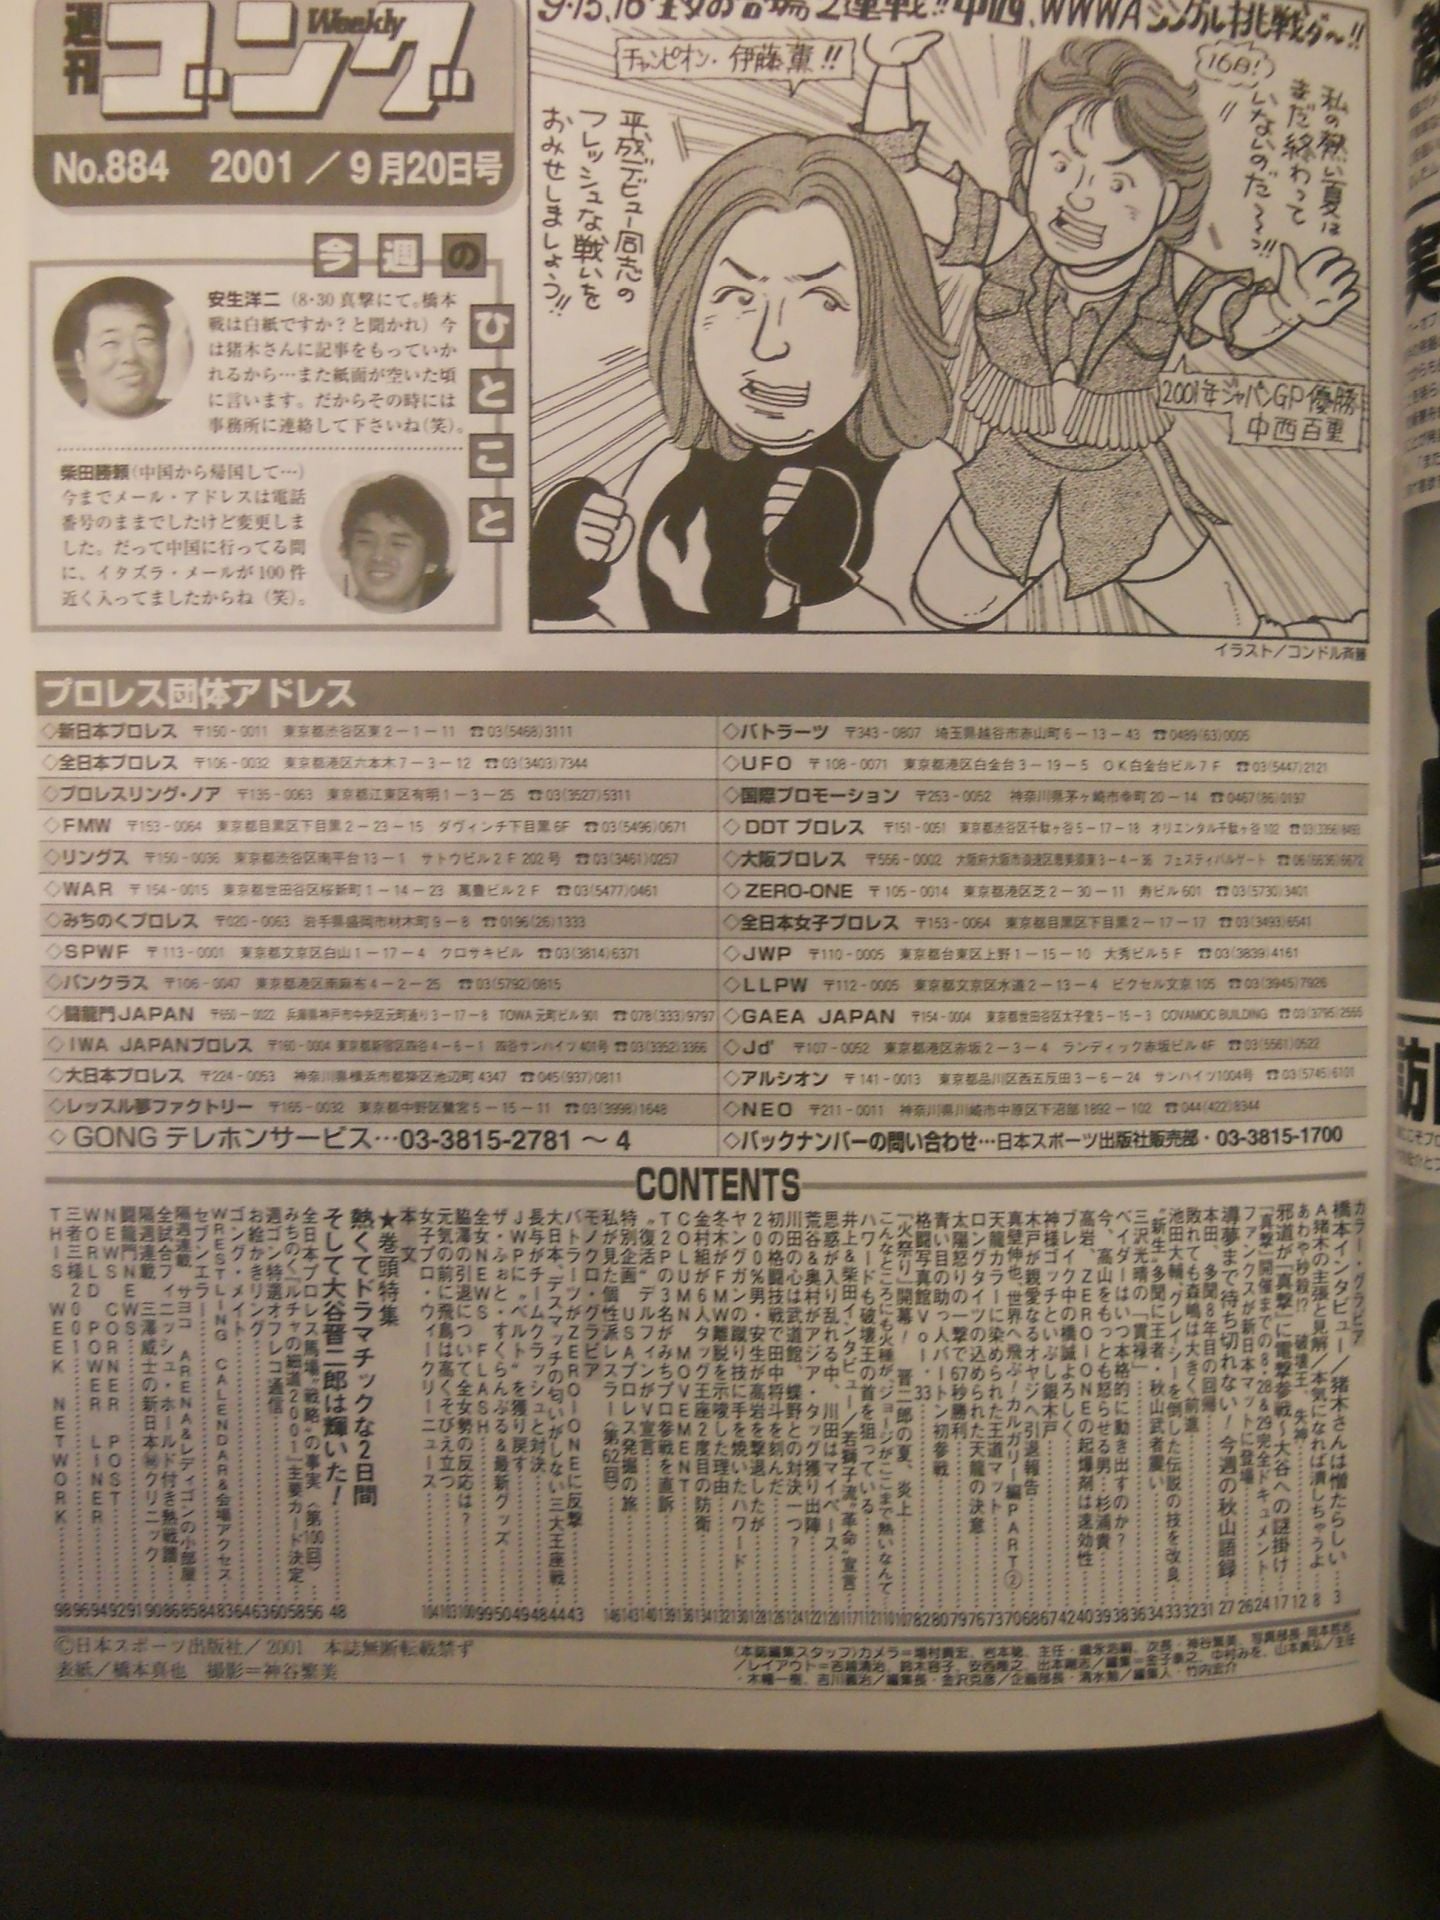 週刊
ゴング
Weekly
No.884 2001／9月20日号
チャンピオン・伊藤薫!!
平成デビュー同志の
フレッシュな戦いを
おみせしましょう!!
私の熱い夏は
まだ終わって
いないのだ〜っ!!
2001年ジャパンGP優勝
中西百重
イラスト／コンドル斉藤
今週のひとこと
安生洋二（8・30真撃にて。橋本
戦は白紙ですか？と聞かれ）今
は猪木さんに記事をもっていか
れるから…また紙面が空いた頃
に言います。だからその時には
事務所に連絡して下さいね（笑）。
柴田勝頼（中国から帰国して…）
今までメール・アドレスは電話
番号のままでしたけど変更しま
した。だって中国に行ってる間
に、イタズラ・メールが100件
近く入ってましたからね（笑）。
プロレス団体アドレス
◇新日本プロレス 〒150-0011 東京都渋谷区東2-1-11 ☎03(5468)3111
◇全日本プロレス 〒106-0032 東京都港区六本木7-3-12 ☎03(3403)7344
◇プロレスリング・ノア 〒135-0063 東京都江東区有明1-3-25 ☎03(3527)5311
◇FMW 〒153-0064 東京都目黒区下目黒2-23-15 ダヴィンチ下目黒6F ☎03(5496)0671
◇リングス 〒150-0036 東京都渋谷区南平台13-1 サトウビル2F202号 ☎03(3461)0257
◇WAR 〒154-0015 東京都世田谷区桜新町1-14-23 萬豊ビル2F ☎03(5477)0461
◇みちのくプロレス 〒020-0063 岩手県盛岡市材木町9-8 ☎0196(26)1333
◇SPWF 〒113-0001 東京都文京区白山1-17-4 クロサキビル ☎03(3814)6371
◇パンクラス 〒106-0047 東京都港区南麻布4-2-25 ☎03(5792)0815
◇闘龍門JAPAN 〒650-0022 兵庫県神戸市中央区元町通り3-17-8 TOWA元町ビル901 ☎078(333)9797
◇IWA JAPANプロレス 〒160-0004 東京都新宿区四谷4-6-1 四谷サンハイツ401号 ☎03(3352)3366
◇大日本プロレス 〒224-0053 神奈川県横浜市都築区池辺町4347 ☎045(937)0811
◇レッスル夢ファクトリー 〒165-0032 東京都中野区鷺宮5-15-11 ☎03(3998)1648
◇GONGテレホンサービス…03-3815-2781〜4
◇バトラーツ 〒343-0807 埼玉県越谷市赤山町6-13-43 ☎0489(63)0005
◇UFO 〒108-0071 東京都港区白金台3-19-5 OK白金台ビル7F ☎03(5447)2121
◇国際プロモーション 〒253-0052 神奈川県茅ヶ崎市幸町20-14 ☎0467(86)0197
◇DDTプロレス 〒151-0051 東京都渋谷区千駄ヶ谷5-17-18 オリエンタル千駄ヶ谷102 ☎03(3356)8493
◇大阪プロレス 〒556-0002 大阪府大阪市浪速区恵美須東3-4-36 フェスティバルゲート ☎06(6636)6672
◇ZERO-ONE 〒105-0014 東京都港区芝2-30-11 寿ビル601 ☎03(5730)3401
◇全日本女子プロレス 〒153-0064 東京都目黒区下目黒2-17-17 ☎03(3493)6541
◇JWP 〒110-0005 東京都台東区上野1-15-10 大秀ビル5F ☎03(3839)4161
◇LLPW 〒112-0005 東京都文京区水道2-13-4 ビクセル文京105 ☎03(3945)7926
◇GAEA JAPAN 〒154-0004 東京都世田谷区太子堂5-15-3 COVAMOC BUILDING ☎03(3795)2555
◇Jd' 〒107-0052 東京都港区赤坂2-3-4 ランディック赤坂ビル4F ☎03(5561)0522
◇アルシオン 〒141-0013 東京都品川区西五反田3-6-24 サンハイツ1004号 ☎03(5745)6101
◇NEO 〒211-0011 神奈川県川崎市中原区下沼部1892-102 ☎044(422)8344
◇バックナンバーの問い合わせ…日本スポーツ出版社販売部・03-3815-1700
CONTENTS
カラー・グラビア
橋本インタビュー／猪木さんは憎たらしい…3
A猪木の主張と見解／本気になれば潰しちゃうよ…8
あわや秒殺!? 破壊王、失神…12
邪道が「真撃」に電撃参戦〜大谷への謎掛け…17
「真撃」開催までの8・28＆29完全ドキュメント…24
ファンクスが新日本マットに登場…26
導夢まで待ち切れない！ 今週の秋山語録…27
本田、多聞8年目の回帰…31
敗れても森嶋は大きく前進…32
池田大輔、グレイシーを倒した伝説の技を改良…33
“新生”多聞に王者・秋山武者震い…34
三沢光晴の「貫禄」…36
ベイダーはいつ本格的に動き出すのか？…38
今、高山をもっとも怒らせる男・杉浦貴…39
高岩、ZERO-ONEの起爆剤は速効性…40
ブレイク中の横誠よろしく…42
神様ゴッチといぶし銀木戸…67
木戸が親愛なるオヤジへ引退報告…68
真壁伸也、世界へ飛ぶ！カルガリー編PART②…70
天龍カラーに染められた王道マット…73
ロングタイツの込められた天龍の決意…76
太陽怒りの一撃で67秒勝利…79
青い目の助っ人バートン初参戦…80
格闘写真館Vol.33…82
「火祭り」開幕！ 晋二郎の夏、炎上…107
こんなところにも火種が。ジョージがここまで熱いなんて…110
ハワードも破壊王の首を狙っている…112
井上＆柴田インタビュー／若獅子流“革命”宣言…117
思惑が入り乱れる中、川田はマイペース…120
荒谷＆奥村がアジア・タッグ獲り出陣…122
川田の心は武道館。蝶野との対決一つ？…124
初の格闘技戦で田中将斗を刻んだ…126
200％男・安生が高岩を撃退したが…128
ヤングガンの蹴り技に手を焼いたハワード…130
冬木がFMW離脱を示唆した理由…132
金村組が6人タッグ王座2度目の防衛…134
COLUMN MOVEMENT…136
T2Pの3名がみちプロ参戦を直訴…139
“復活”デルフィンがV宣言…140
特別企画 USAプロレス発掘の旅…143
私が見た個性派レスラー〈第62回〉…146
モノクロ・グラビア
バトラーツがZERO-ONEに反撃…43
大日本、デスマッチの匂いがしない三大王座戦…44
長与がチームクラッシュと対決…48
JWPに“ベルト”を獲り戻す…49
ザ・ふぉと・すくらんぶる＆最新グッズ…50
全女NEWS FLASH…99
脇澤の引退について全女勢の反応は？…100
元気の前に飛鳥は高くそびえ立つ…103
女子プロ・ウィークリーニュース…104
本文
★巻頭特集
熱くてドラマチックな2日間
そして大谷晋二郎は輝いた！…48
全日本プロレス馬場“戦略”の事実〈第100回〉…56
みちのく『ルチャの細道2001』主要カード決定…58
週ゴン特選オフレコ通信…60
お絵かきリング…63
ゴング・メイト…64
WRESTLING CALENDAR＆会場アクセス…83
セブンエラー…84
隔週連載 サヨコ ARENA＆レディゴンの小部屋…85
全試合フィニッシュ・ホールド付き熱戦譜…86
隔週連載 三澤威士の新日本㊙クリニック…90
闘龍門NEWS…91
NEWS CORNER POST…92
WORLD POWER LINER…94
三者三様2001…96
THIS WEEK NETWORK…98
©日本スポーツ出版社／2001 本誌無断転載禁ず
表紙／橋本真也 撮影＝神谷繁美